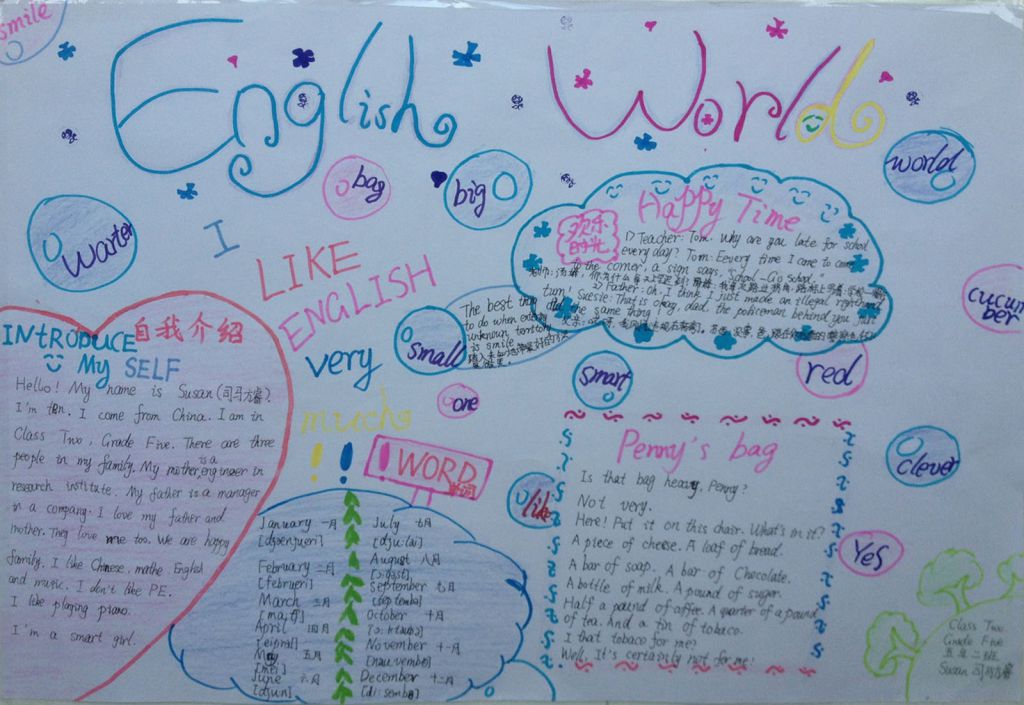 smile
English World
world
bag
big
warter
I
LIKE
ENGLISH
very
much
!!
Happy Time
欢乐
时光
1) Teacher: Tom. Why are you late for school
every day? Tom: Eevery time I came to come
to the corner, a sign says, "School-Go School."
2) Father: Oh, I think I just made an illegal right-hand
turn! Suesie: That is okay, dad, the policeman behind you just
did the same thing!
The best thing
to do when entering
unknown territory
is smile.
cucumber
small
smart
red
one
INtRODUCE 自我介绍
My SELF
Hello! My name is Susan (司马方睿).
I'm ten. I come from China. I am in
Class Two, Grade Five. There are three
people in my family. My mother is a engineer in
research institute. My father is a manager
in a company. I love my father and
mother. They love me too. We are happy
family. I like Chinese, mathe, English
and music. I don't like PE.
I like playing piano.
I'm a smart girl.
! WORD
单词
like
clever
Yes
January 一月
July 七月
[dju:lai]
February 二月
August 八月
March 三月
September 九月
October 十月
April 四月
November 十一月
May 五月
[mei]
June 六月
December 十二月
[djun]
Penny's bag
Is that bag heavy, Penny?
Not very.
Here! Put it on this chair. What's in it?
A piece of cheese. A loaf of bread.
A bar of soap. A bar of Chocolate.
A bottle of milk. A pound of sugar.
Half a pound of coffee. A quarter of a pound
of tea. And a tin of tobaco.
I that tobaco for me?
Well, It's certainly not for me!
Class Two
Grade Five
五年二班
Susan 司马方睿